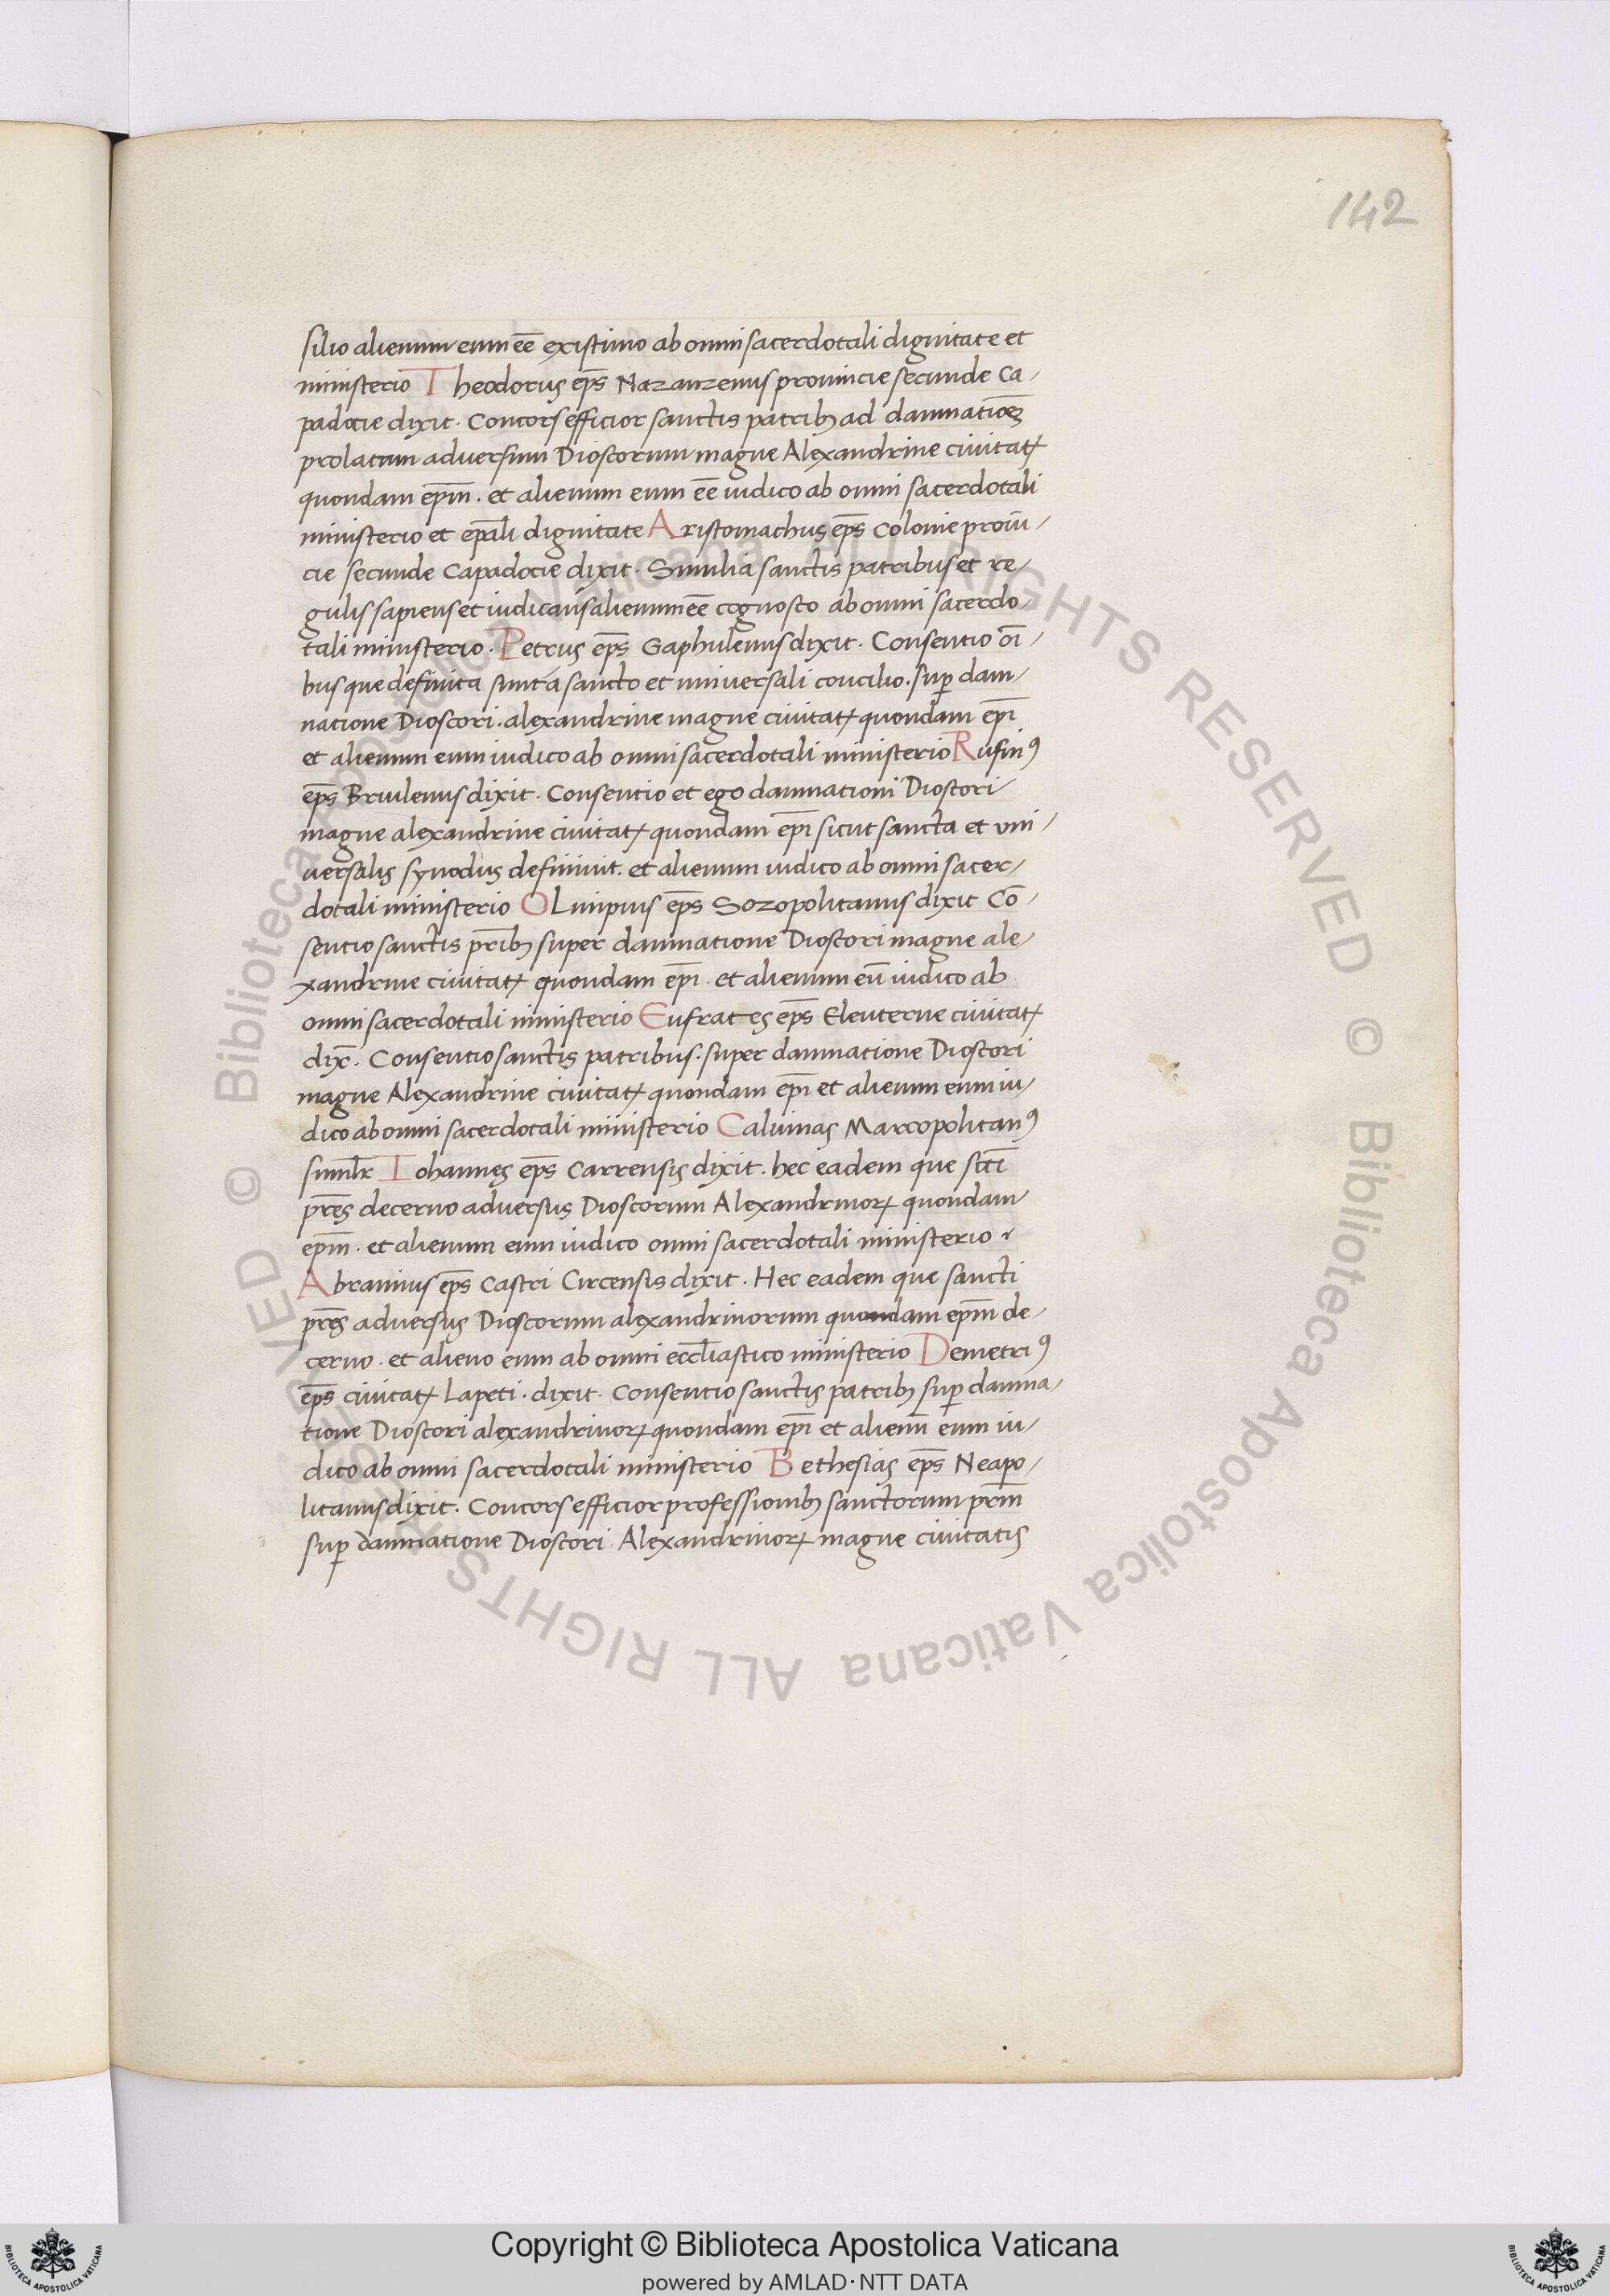 142
silio alienum eum eē existimo ab omni sacerdotali dignitate et
ministerio Theodorus ep̄s Nazanzenus prouincie secunde Ca-
padocie dixit. Concors efficior sanctis patribꝫ ad damnatiōeꝫ
prolatam adversum Dioscorum magne Alexandrine ciuitatꝭ
quondam ep̄m. et alienum eum eē iudico ab omni sacerdotali
ministerio et ep̄ali dignitate Aristomachus ep̄s Colonie proiū-
cie secunde Capadocie dixit. Similia sanctis patribus et re-
gulis sapiens et iudicans alienum eē cognosco ab omni sacerdo-
tali ministerio. Petrus ep̄s Gaphulenus dixit. Consentio oī-
bus que definita sunt a sancto et universali concilio. suꝑ dam-
natione Dioscori. alexandrine magne ciuitatꝭ quondam ep̄i
et alienum eum iudico ab omni sacerdotali ministerio Rufinꝰ
ep̄s Briulenus dixit. Consentio et ego damnationi Dioscori
magne alexandrine ciuitatꝭ quondam ep̄i sicut sancta et vni-
uersalis synodus definiuit. et alienum iudico ab omni sacer-
dotali ministerio OLimpius ep̄s Sozopolitanus dixit Cō-
sentio sanctis pr̄ibꝫ super damnatione Dioscori magne ale-
xandrine ciuitatꝭ quondam ep̄i. et alienum eū iudico ab
omni sacerdotali ministerio Eufrates ep̄s Eleuterne ciuitatꝭ
dix̄. Consentio sanctis patribus. super damnatione Dioscori
magne Alexandrine ciuitatꝭ quondam ep̄i et alienum eum iu-
dico ab omni sacerdotali ministerio Caluinas Marcopolitanꝰ
simil̄r Iohannes ep̄s Carrensis dixit. hec eadem que sc̄ti
pr̄es decerno adversus Dioscorum Alexandrinorꝭ quondam
ep̄m. et alienum eum iudico omni sacerdotali ministerio.
Abramius ep̄s Castri Circensis dixit. Hec eadem que sancti
pr̄es adversus Dioscorum alexandrinorum quondam ep̄m de-
cerno. et alieno eum ab omni eccl̄iastico ministerio Demetriꝰ
ep̄s ciuitatꝭ Lapeti. dixit. Consentio sanctis patribꝫ suꝑ damna-
tione Dioscori alexandrinorꝭ quondam ep̄i et alienū eum iu-
dico ab omni sacerdotali ministerio Bethesias ep̄s Neapo-
litanus dixit. Concors efficior professionibꝫ sanctorum pr̄m
suꝑ damnatione Dioscori Alexandrinorꝭ magne ciuitatis
© Biblioteca Apostolica Vaticana ALL RIGHTS RESERVED © Biblioteca Apostolica Vaticana ALL RIGHTS RESERVED
Copyright © Biblioteca Apostolica Vaticana
powered by AMLAD·NTT DATA
BIBLIOTECA APOSTOLICA VATICANA
BIBLIOTECA APOSTOLICA VATICANA